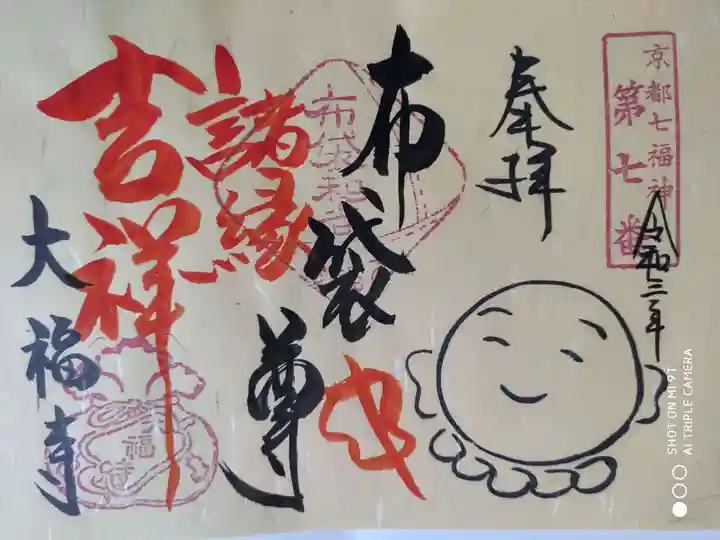 京都七福神
第七番
令和三年
奉拝
布袋尊
布袋和尚
諸縁
吉祥
大福寺
SHOT ON MI 9T
AI TRIPLE CAMERA